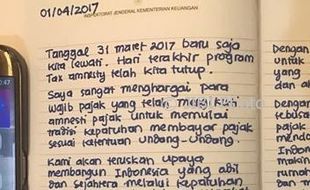 01/04/2017
INSPEKTORAT JENDERAL KEMENTERIAN KEUANGAN
Tanggal 31 maret 2017 baru saja
kita lewati. Hari terakhir program
Tax amnesty telah kita tutup.
Saya sangat menghargai para
wajib pajak yang telah
amnesti pajak untuk memulai
tradisi kepatuhan membayar pajak
sesuai ketentuan Undang-Undang.
Kami akan teruskan upaya
membangun Indonesia yang adil
dan sejahtera melalui kepatuhan
Dengan
untuk
yang
dan a
Dengan
kondisi
Undang
Indone
makin
rumah
dan